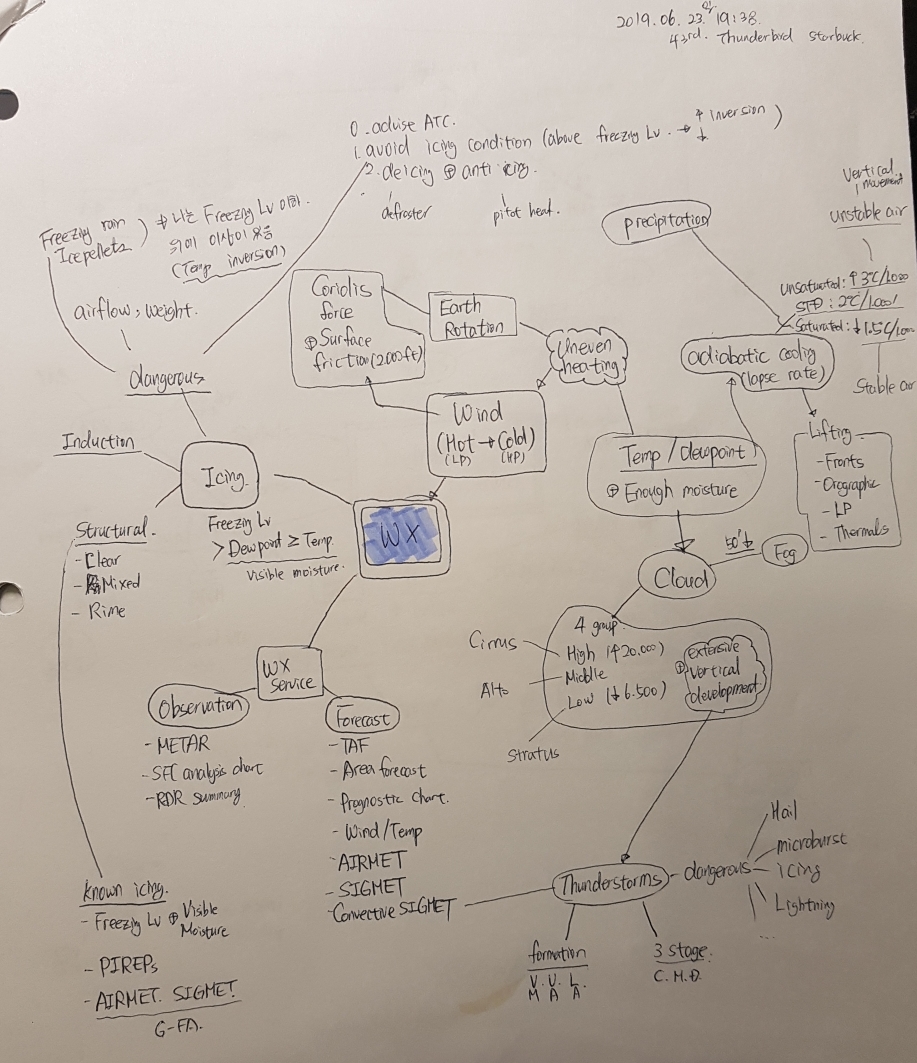 2019.06.23. 19:38.
43rd. Thunderbird Starbuck.
0. advise ATC.
1. avoid icing condition (above freezing Lv. → ↑ inversion)
↓
2. deicing ⊕ anti icing.
defroster
pitot heat.
Freezing rain
Ice pellets
Freezing Lv 이하.
위에 이상이 있음
(Temp inversion)
airflow, weight.
dangerous
Induction
Icing.
Structural.
- Clear
- Mixed
- Rime
Freezing Lv
> Dewpoint ≥ Temp.
visible moisture.
Coriolis
force
⊕ Surface
friction (2000ft)
Earth
Rotation
Uneven
heating
Wind
(Hot → Cold)
(LP) (HP)
WX
precipitation
Vertical
movement
unstable air
Unsaturated: ↑3℃/1000
STD: 2℃/1000
Saturated: ↓1.5℃/1000
Stable air
adiabatic coolig
(lapse rate)
Temp / dewpoint
⊕ Enough moisture
Lifting
- Fronts
- Orographic
- LP
- Thermals
Cloud
50'↓
Fog
4 group.
High (↑20,000)
Middle
Low (↓6,500)
⊕ extensive
vertical
development
Cirrus
Alto
Stratus
WX
Service
Observation
- METAR
- SFC analysis chart
- RDR summary
Forecast
- TAF
- Area forecast
- Prognostic chart.
- Wind/Temp
- AIRMET
- SIGMET
- Convective SIGMET
Thunderstorms
dangerous
Hail
microburst
icing
Lightning
...
formation
V. U. L.
M A A
3 stage.
C. M. D.
known icing.
- Freezing Lv ⊕ Visible
Moisture
- PIREPs
- AIRMET. SIGMET.
G-FA.